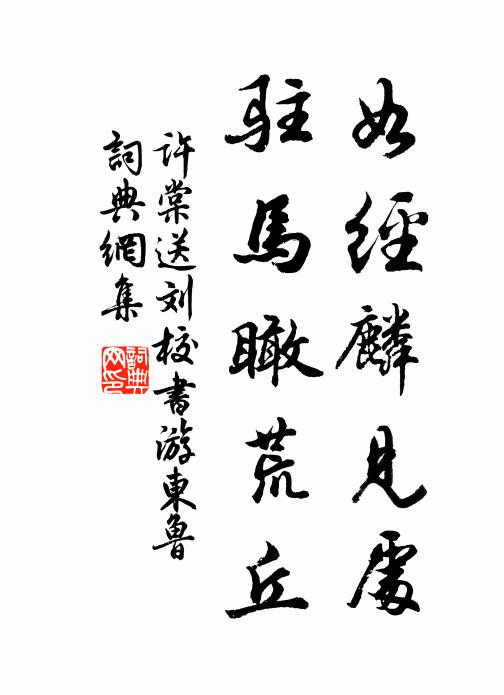 如經麟見處
駐馬瞰荒丘
許棠送刘校書游東魯
詞典網集
詞典网印